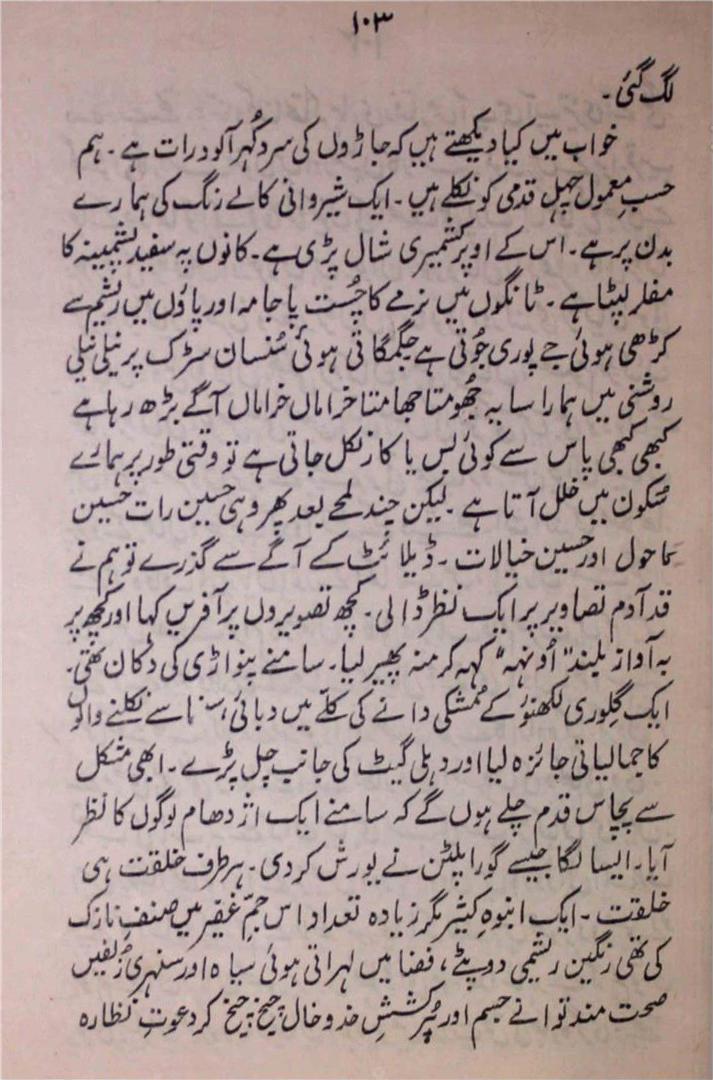 ۱۰۳
لگ گئی۔
خواب میں کیا دیکھتے ہیں کہ جاڑوں کی سرد کُہر آلود رات ہے۔ ہم
حسبِ معمول چہل قدمی کو نکلے ہیں۔ ایک شیروانی کالے رنگ کی ہمارے
بدن پر ہے۔ اس کے اوپر کشمیری شال پڑی ہے۔ کانوں پہ سفید پشمینہ کا
مفلر لپٹا ہے۔ ٹانگوں میں نرمے کا چُست پاجامہ اور پاؤں میں ریشم سے
کڑھی ہوئی جے پوری جُوتی ہے جگمگاتی ہوئی سُنسان سڑک پر نیلی نیلی
روشنی میں ہمارا سایہ جُھومتا جھامتا خراماں خراماں آگے بڑھ رہا ہے
کبھی کبھی پاس سے کوئی بس یا کار نکل جاتی ہے تو وقتی طور پر ہمارے
سُکون میں خلل آتا ہے۔ لیکن چند لمحے بعد پھر وہی حسین رات حسین
ماحول اور حسین خیالات۔ ڈیلائٹ کے آگے سے گذرے تو ہم نے
قد آدم تصاویر پر ایک نظر ڈالی۔ کچھ تصویروں پر آفریں کہا اور کچھ پر
بہ آواز بلند "اُونہہ" کہہ کر منہ پھیر لیا۔ سامنے پنواڑی کی دکان تھی۔
ایک گلوری لکھنؤ کے مُشکی دانے کی کلّے میں دبائی، سے نکلنے والوں
کا جمالیاتی جائزہ لیا اور دہلی گیٹ کی جانب چل پڑے۔ ابھی مشکل
سے پچاس قدم چلے ہوں گے کہ سامنے ایک اژدھام لوگوں کا نظر
آیا۔ ایسا لگا جیسے گورا پلٹن نے یورش کر دی۔ ہر طرف خلقت ہی
خلقت۔ ایک انبوہِ کثیر مگر زیادہ تعداد اس جمِّ غفیر میں صنفِ نازک
کی تھی رنگین ریشمی دوپٹے، فضا میں لہراتی ہوئی سیاہ اور سنہری زُلفیں
صحت مند توانے جسم اور پُرکشش خدوخال چیخ چیخ کر دعوتِ نظارہ